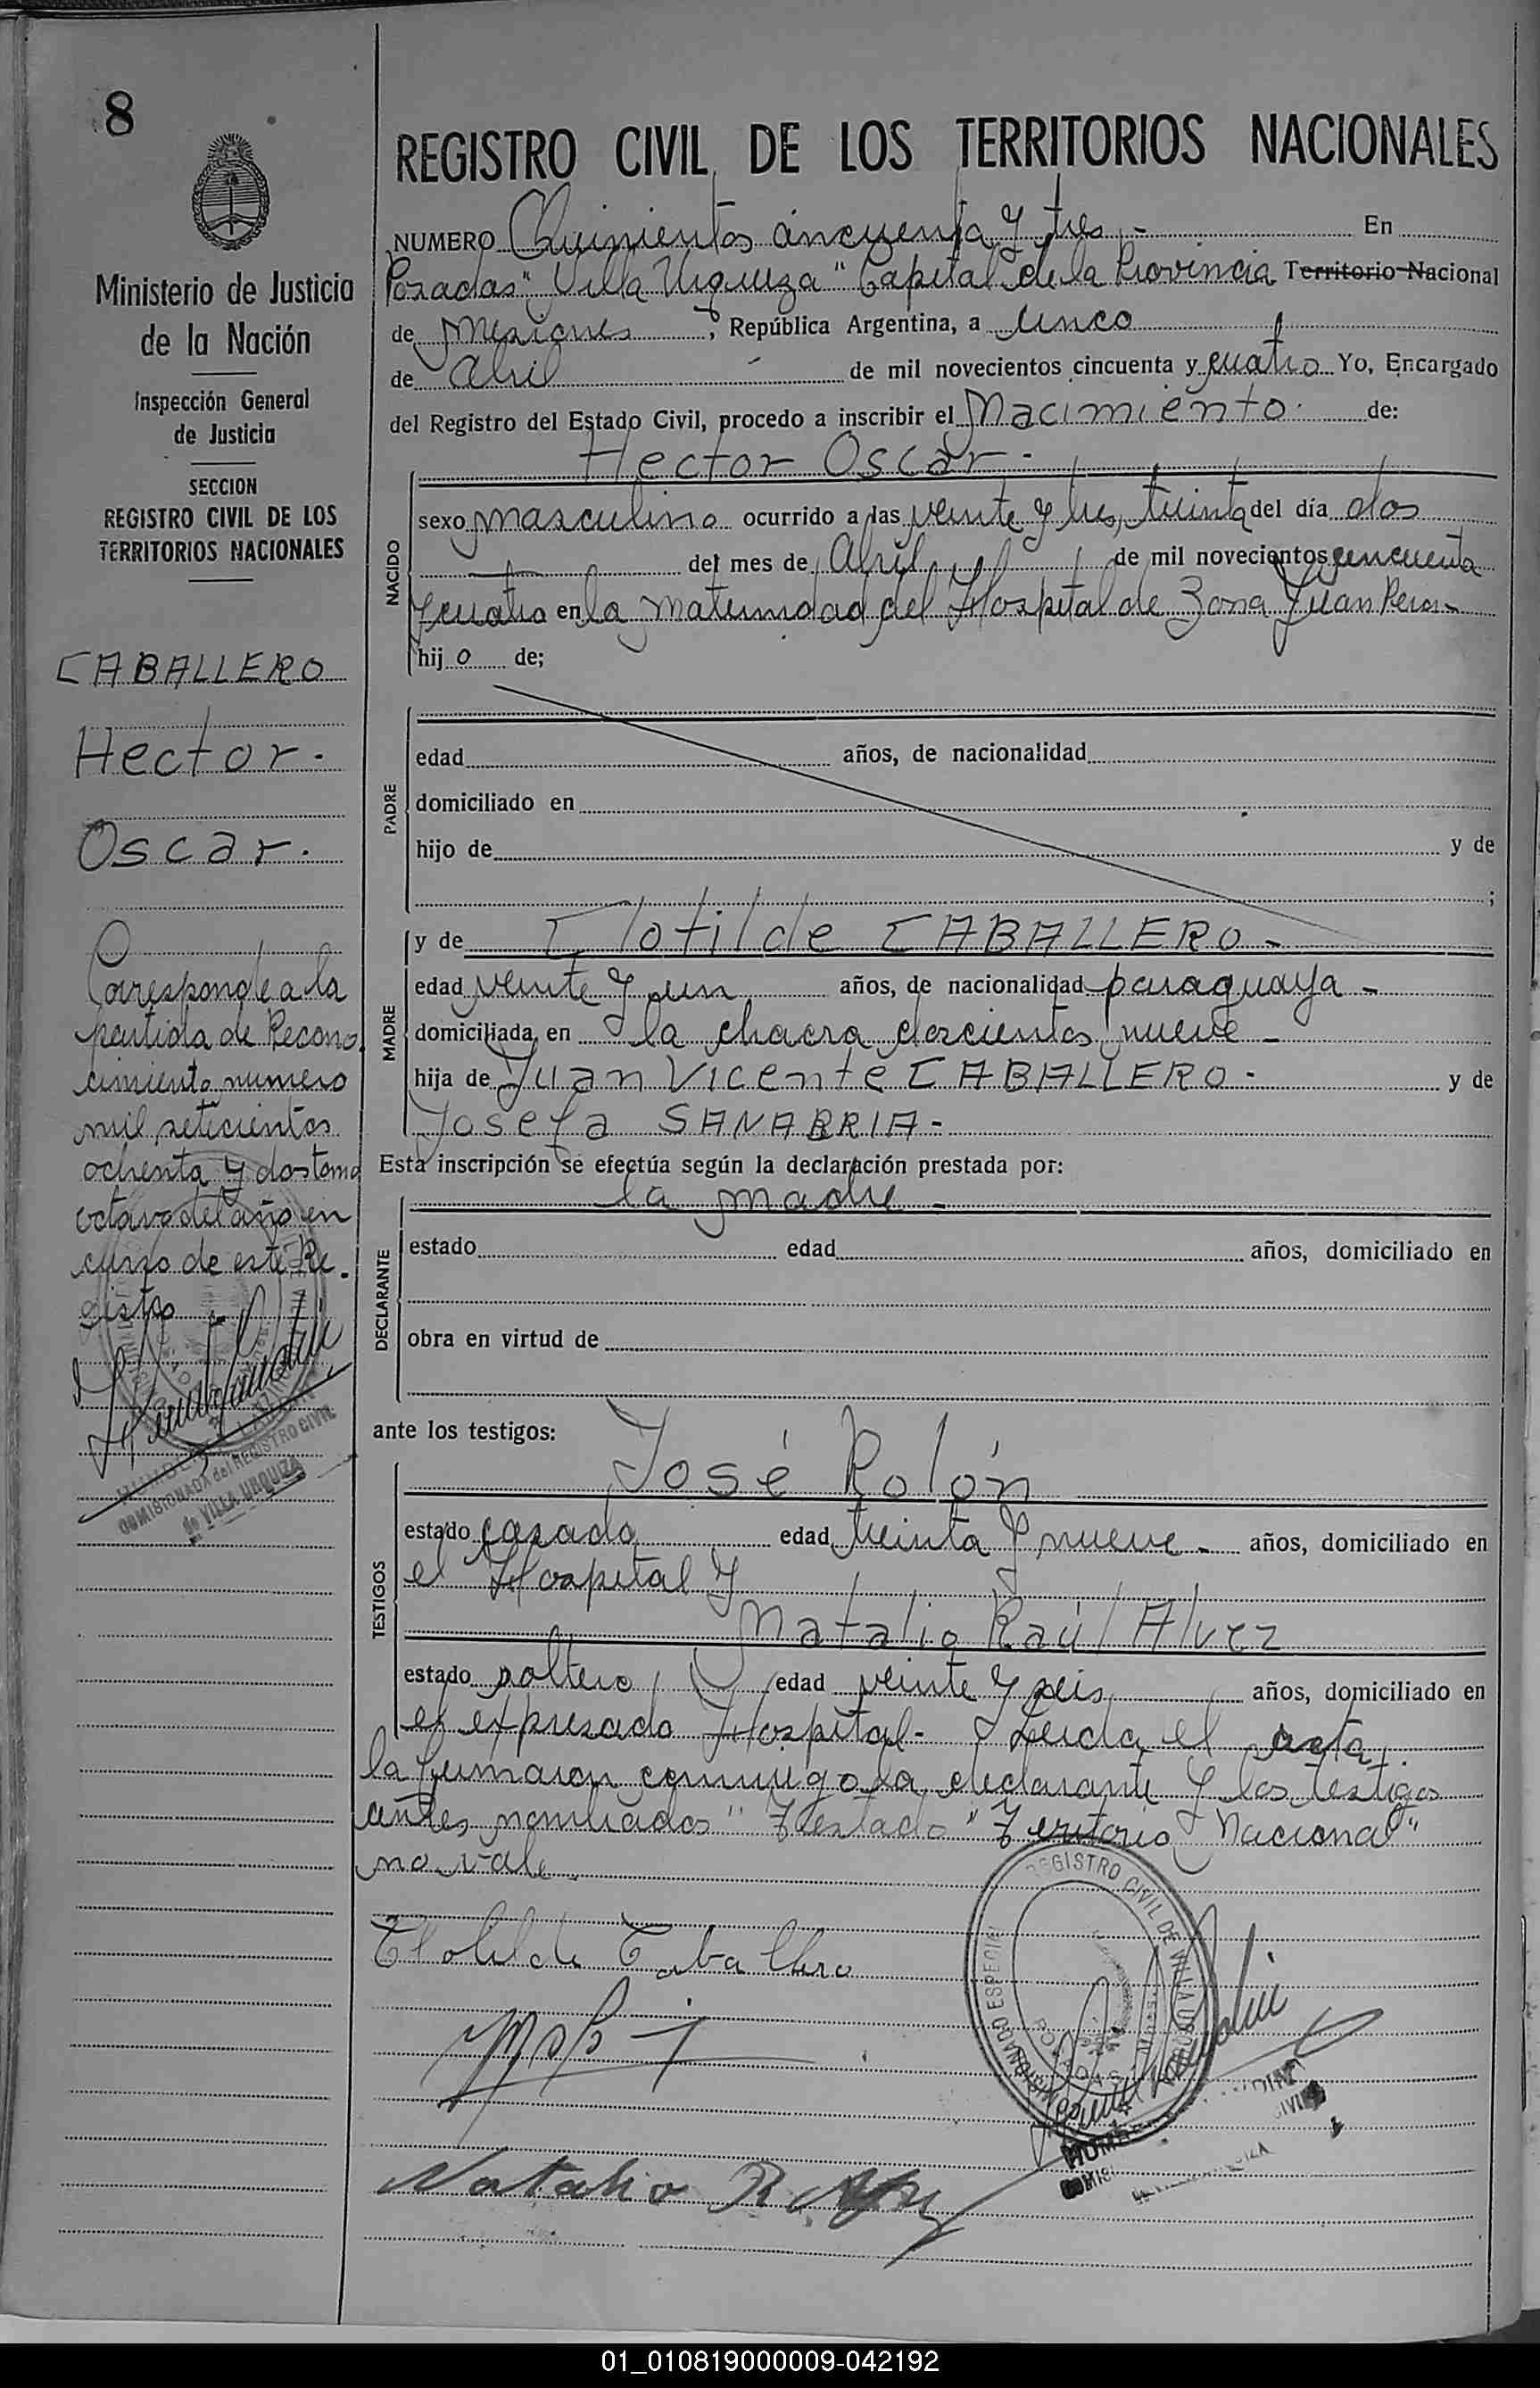 8
Ministerio de Justicia
de la Nación
Inspección General
de Justicia
SECCION
REGISTRO CIVIL DE LOS
TERRITORIOS NACIONALES
CABALLERO
Hector.
Oscar.
Corresponde a la
partida de Recono
cimiento numero
mil setecientos
ochenta y dos tomo
octavo del año en
curso de este Re.
gistro
COMISIONADA del REGISTRO CIVIL
de VILLA URQUIZA
REGISTRO CIVIL DE LOS TERRITORIOS NACIONALES
NUMERO Quinientos cincuenta y tres - En
Posadas "Villa Urquiza" Capital de la Provincia Territorio Nacional
de Misiones, República Argentina, a cinco
de Abril de mil novecientos cincuenta y cuatro Yo, Encargado
del Registro del Estado Civil, procedo a inscribir el Nacimiento de:
Hector Oscar.-
NACIDO
sexo masculino ocurrido a las veinte y tres, treinta del día dos
del mes de Abril de mil novecientos cincuenta
y cuatro en la maternidad del Hospital de Zona Juan Peron-
hijo de;
PADRE
edad años, de nacionalidad
domiciliado en
hijo de y de
;
MADRE
y de Clotilde CABALLERO-
edad veinte y un años, de nacionalidad paraguaya-
domiciliada en la chacra doscientos nueve-
hija de Juan Vicente CABALLERO- y de
Josefa SANABRIA-
Esta inscripción se efectúa según la declaración prestada por:
la madre-
DECLARANTE
estado edad años, domiciliado en
obra en virtud de
ante los testigos:
José Rolón
TESTIGOS
estado casado edad treinta y nueve- años, domiciliado en
el Hospital y
Natalio Raúl Alvez
estado soltero edad veinte y seis años, domiciliado en
el expresado Hospital- Leida el acta
la firmaron conmigo la declarante y los testigos
antes nombrados "Testado" Territorio Nacional"
no vale.
Clotilde Caballero
Natalio R
REGISTRO CIVIL DE VILLA
01_010819000009-042192